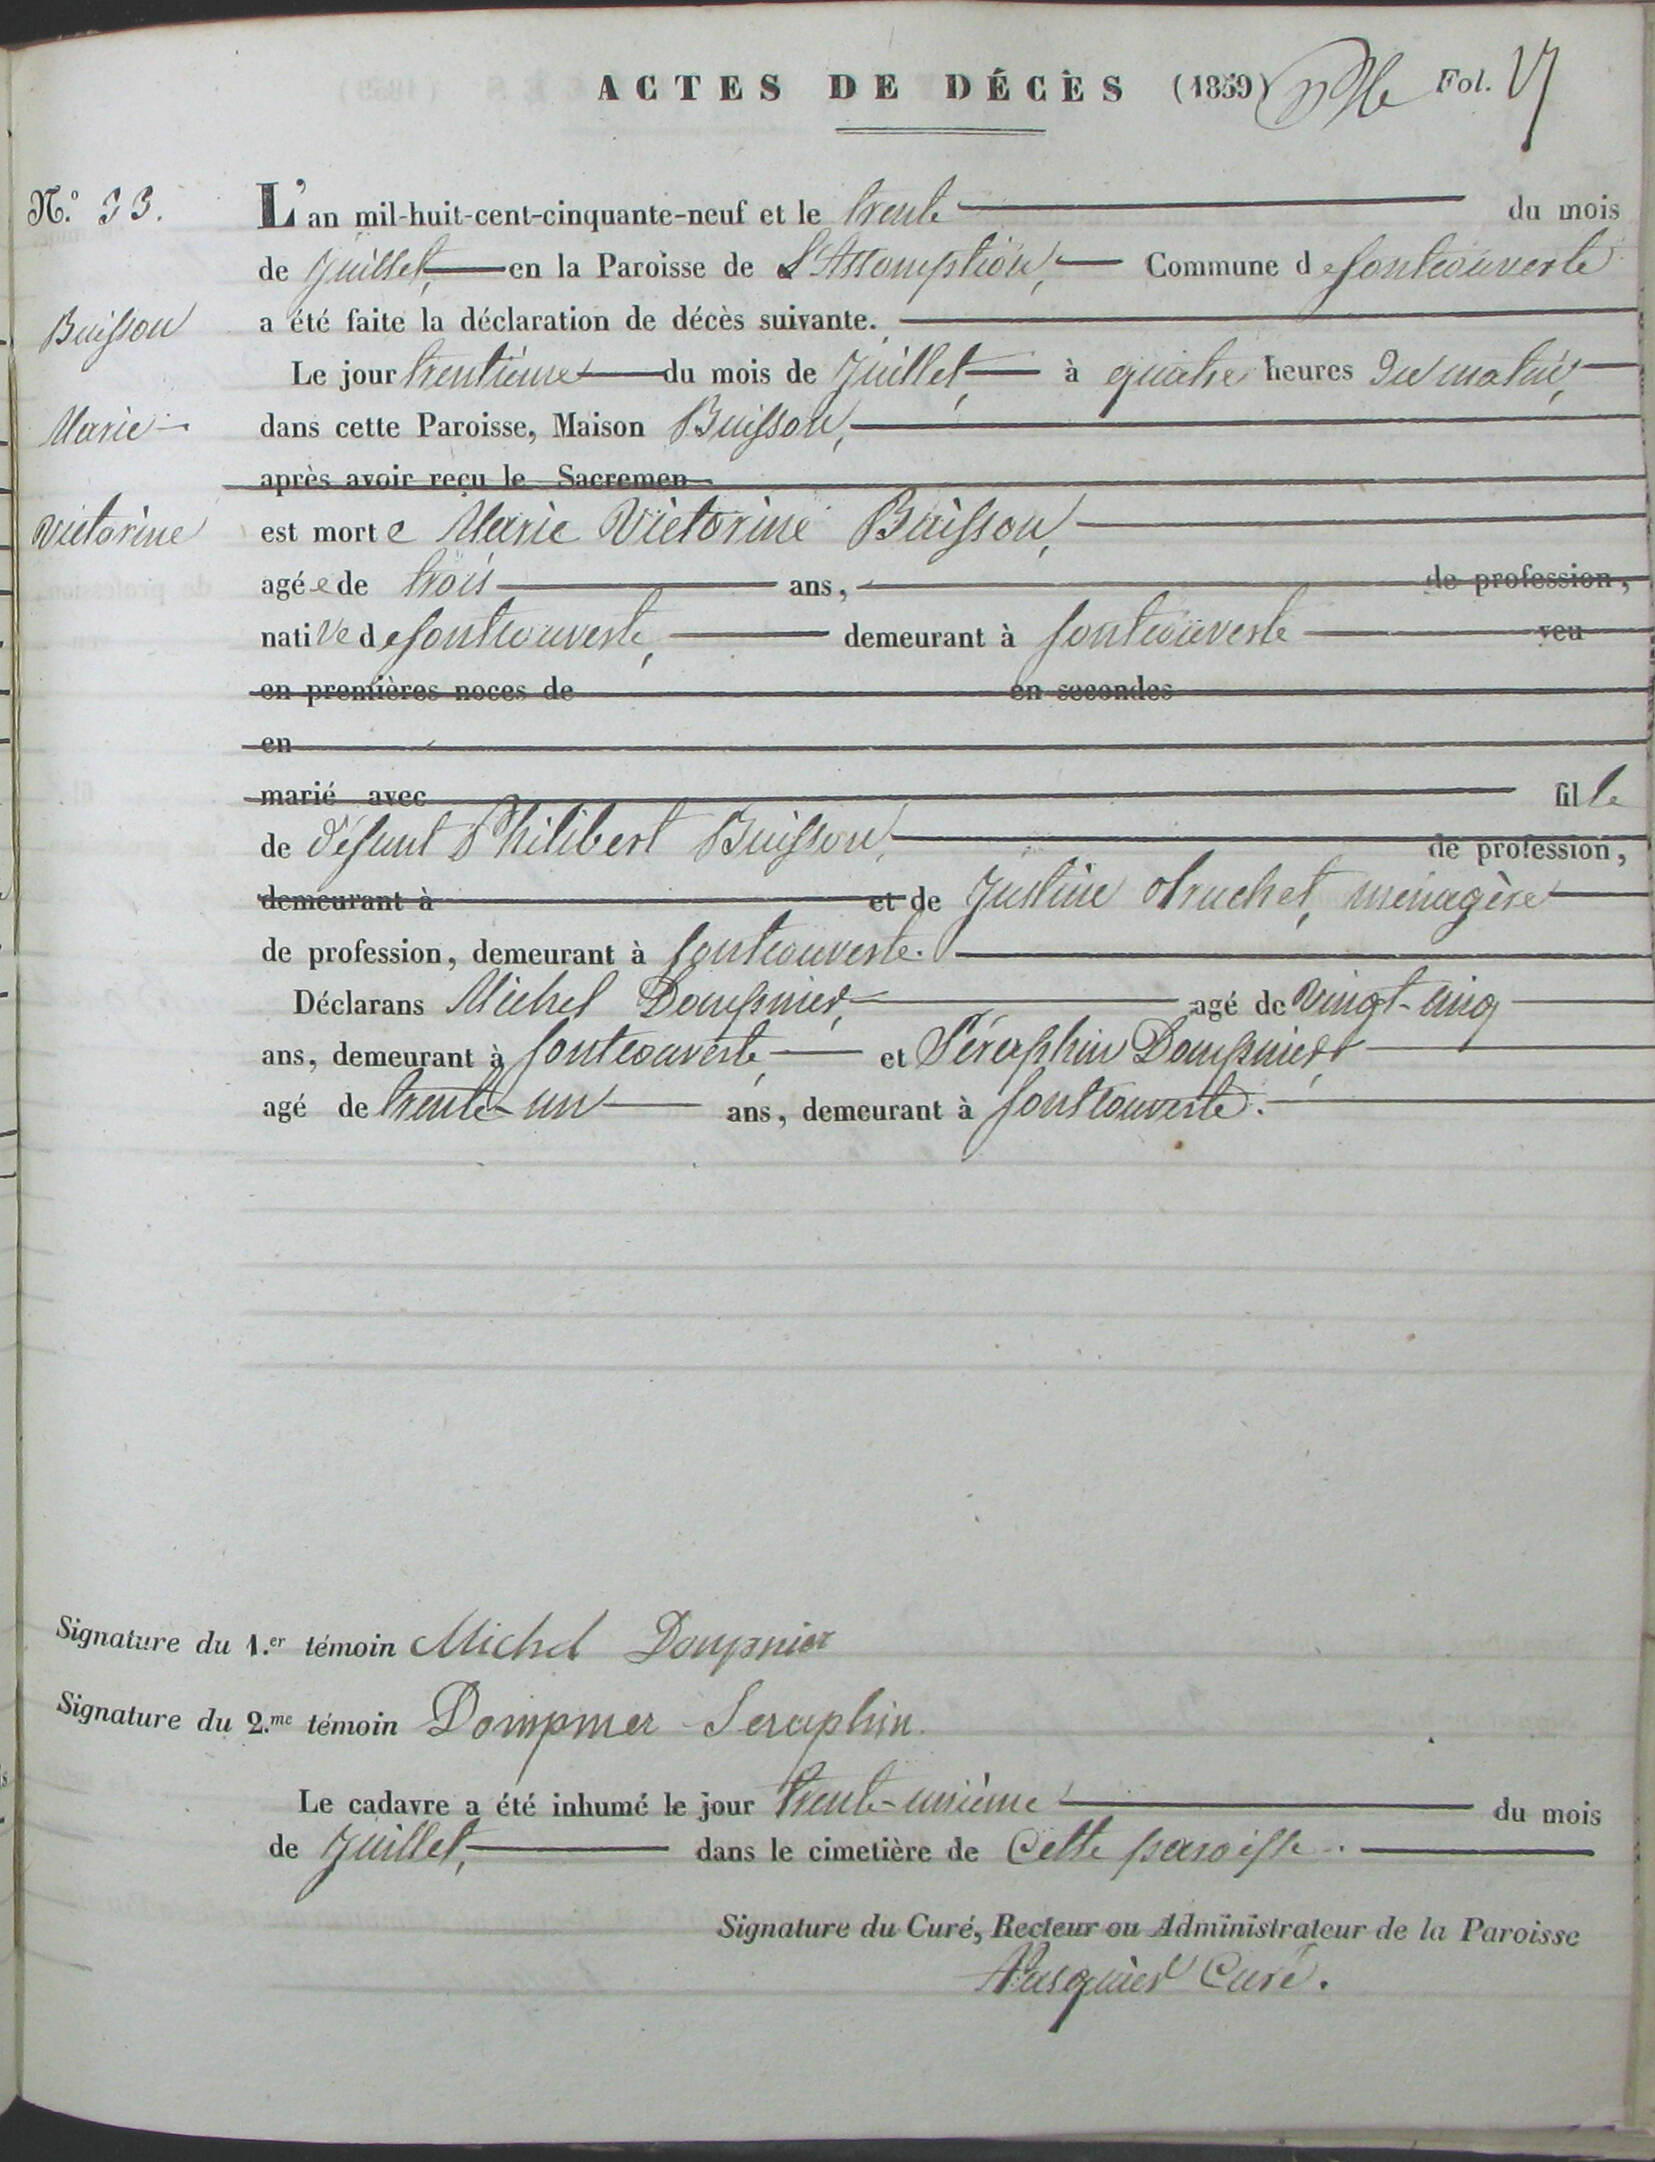 ACTES DE DÉCÈS (1859) Fol. 17
N.° 33. L'an mil-huit-cent-cinquante-neuf et le trente du mois
de Juillet, en la Paroisse de L'Assomption, Commune de fontcouverte
Buisson a été faite la déclaration de décès suivante.
Le jour trentième du mois de Juillet, à quatre heures du matin,
Marie dans cette Paroisse, Maison Buisson,
après avoir reçu le Sacremen
Victorine est morte Marie Victorine Buisson,
agée de trois ans, de profession,
native de fontcouverte, demeurant à fontcouverte veu
en premières noces de en secondes
en
marié avec fille
de défunt Philibert Buisson, de profession,
demeurant à et de Justine Truchet, ménagère
de profession, demeurant à fontcouverte.
Déclarans Michel Dompnier, agé de vingt-cinq
ans, demeurant à fontcouverte, et Séraphin Dompnier,
agé de trente-un ans, demeurant à fontcouverte.
Signature du 1.er témoin Michel Dompnier
Signature du 2.me témoin Dompnier Seraphin
Le cadavre a été inhumé le jour trente-unième du mois
de Juillet, dans le cimetière de Cette paroisse.
Signature du Curé, Recteur ou Administrateur de la Paroisse
Pasquier Curé.